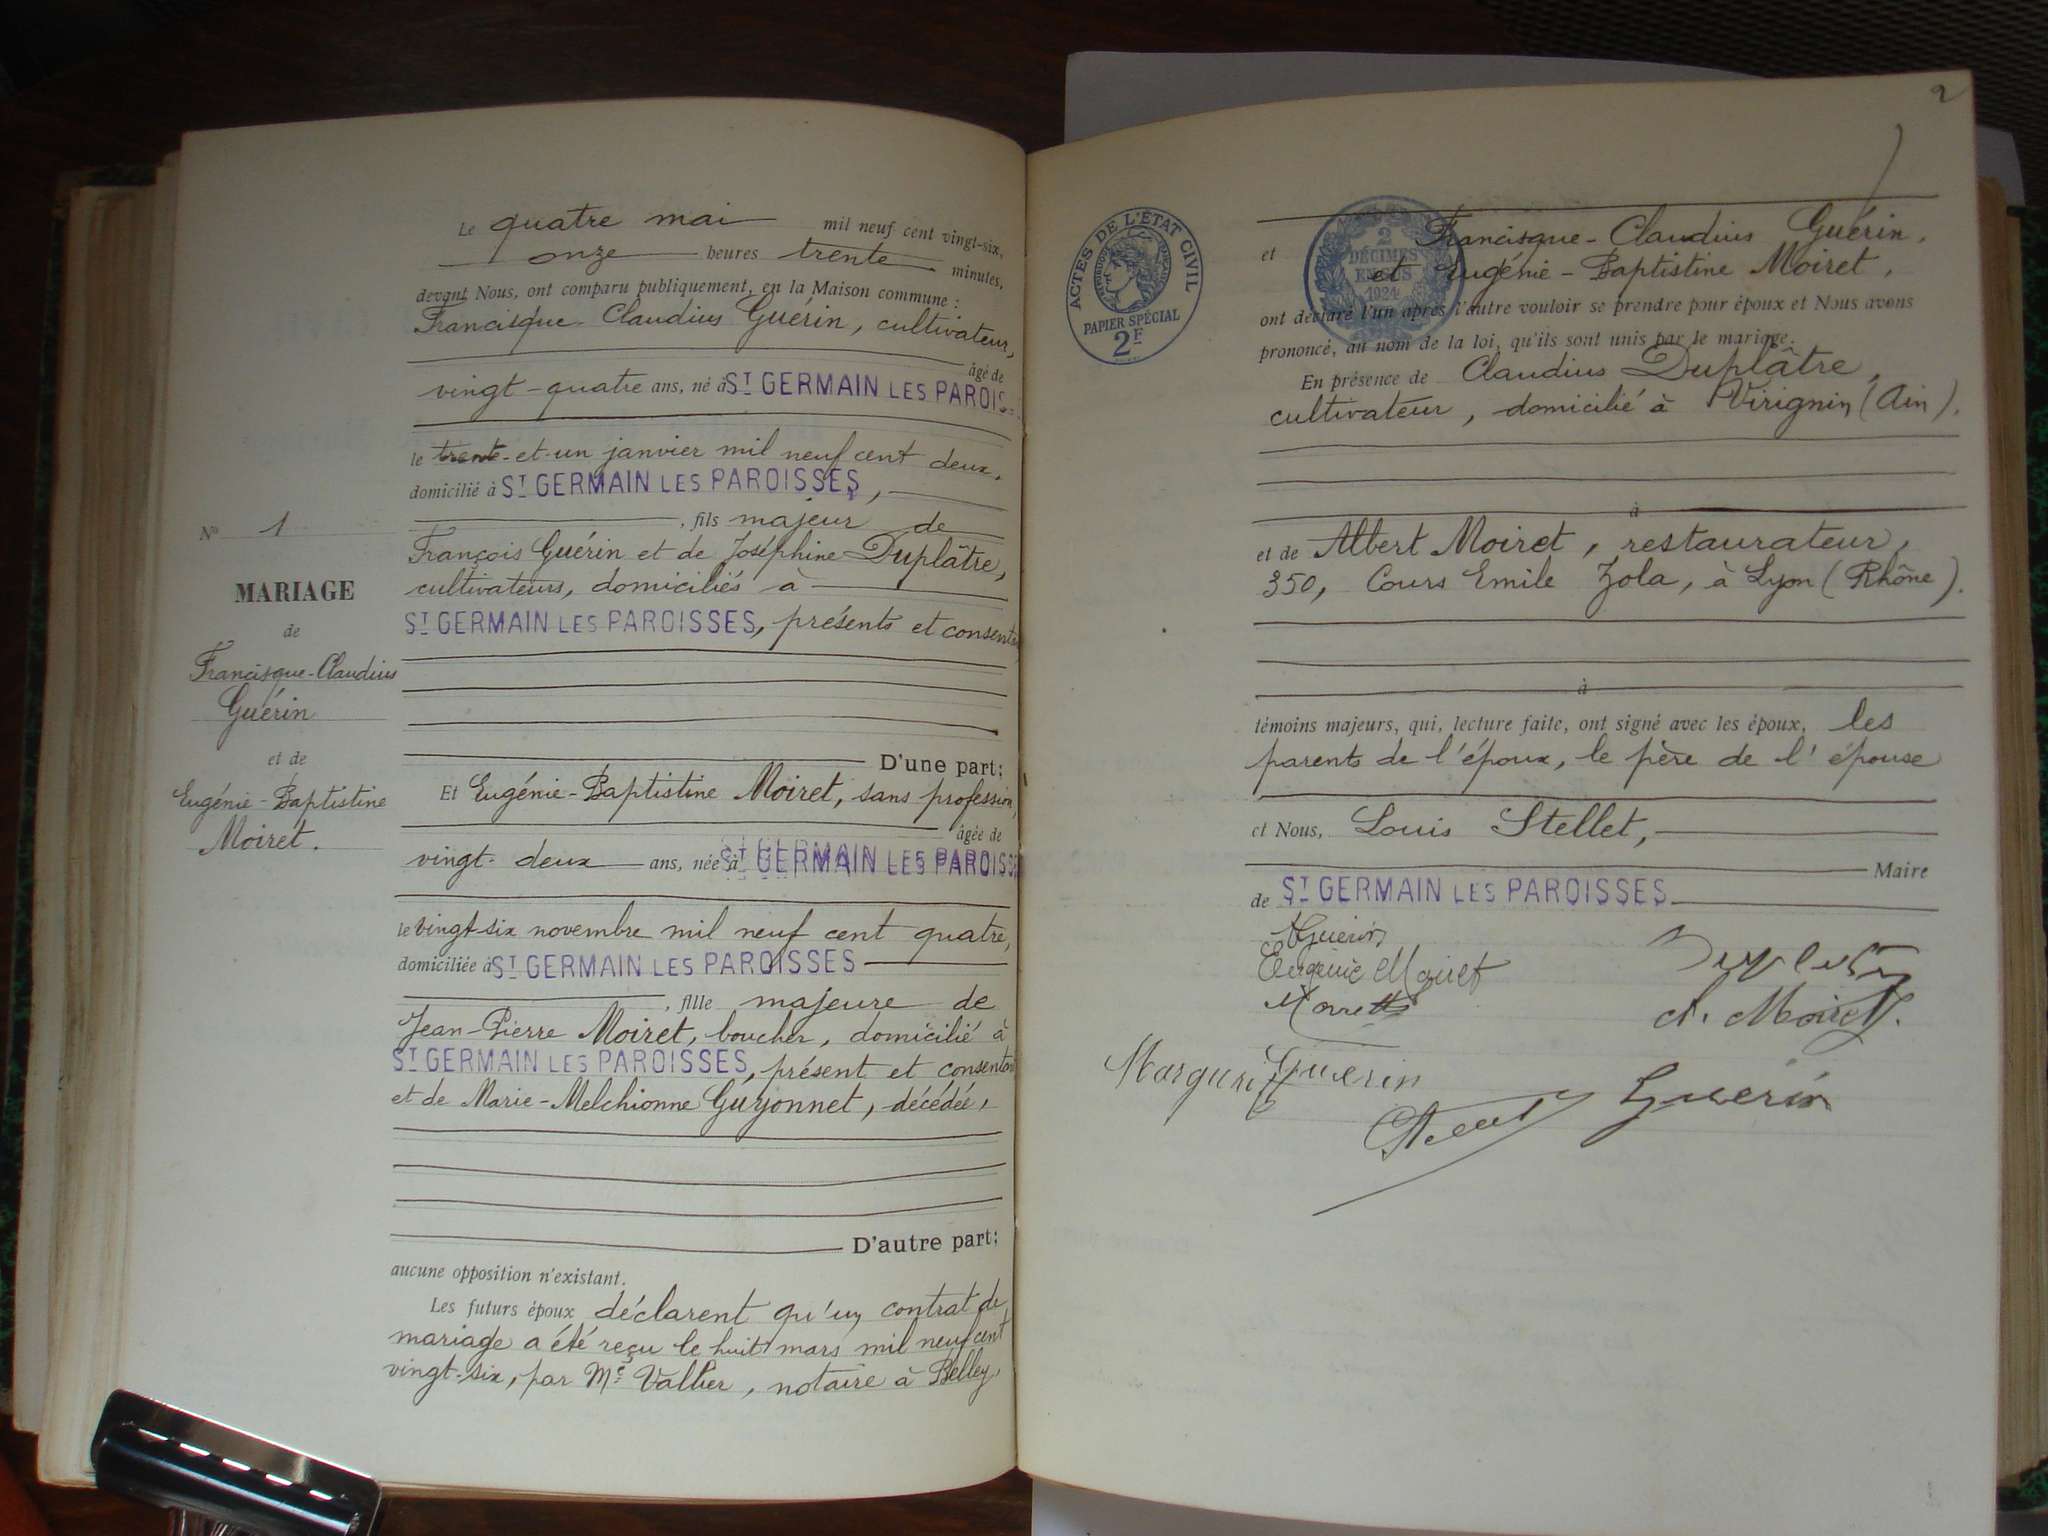 Le quatre mai mil neuf cent vingt-six,
onze heures trente minutes,
devant Nous, ont comparu publiquement, en la Maison commune :
Francisque-Claudius Guérin, cultivateur,
âgé de
vingt-quatre ans, né à ST GERMAIN LES PAROIS
le trente-et-un janvier mil neuf cent deux,
domicilié à ST GERMAIN LES PAROISSES,
, fils majeur de
François Guérin et de Joséphine Duplâtre,
cultivateurs, domiciliés à
ST GERMAIN LES PAROISSES, présents et consent
D'une part;
Et Eugénie-Baptistine Moiret, sans profession,
âgée de
vingt-deux ans, née à ST GERMAIN LES PAROISS
le vingt-six novembre mil neuf cent quatre,
domiciliée à ST GERMAIN LES PAROISSES
, fille majeure de
Jean-Pierre Moiret, boucher, domicilié à
ST GERMAIN LES PAROISSES, présent et consentant
et de Marie-Melchionne Guyonnet, décédée,
D'autre part;
aucune opposition n'existant.
Les futurs époux déclarent qu'un contrat de
mariage a été reçu le huit mars mil neuf cent
vingt-six, par Me Vallier, notaire à Belley,
No 1
MARIAGE
de
Francisque-Claudius
Guérin
et de
Eugénie-Baptistine
Moiret.
2
ACTES DE L'ÉTAT CIVIL
PAPIER SPÉCIAL
2F
2
DÉCIMES
EN SUS
1924
Francisque-Claudius Guérin,
et et Eugénie-Baptistine Moiret,
ont déclaré l'un après l'autre vouloir se prendre pour époux et Nous avons
prononcé, au nom de la loi, qu'ils sont unis par le mariage.
En présence de Claudius Duplâtre,
cultivateur, domicilié à Virignin (Ain).
à
et de Albert Moiret, restaurateur,
350, Cours Emile Zola, à Lyon (Rhône).
à
témoins majeurs, qui, lecture faite, ont signé avec les époux, les
parents de l'époux, le père de l'épouse
et Nous, Louis Stellet,
Maire
de ST GERMAIN LES PAROISSES
Guérin
Eugénie Moiret
A. Moiret
Guerin
Guérin